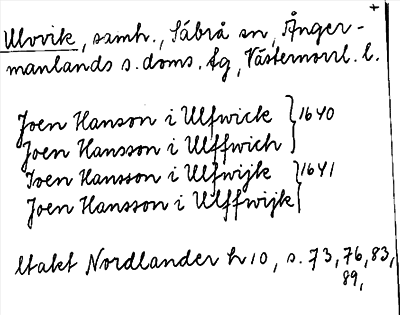 +
Ulvvik, samh., Säbrå sn, Ånger-
manlands s. doms. tg, Västernorrl. l.
Joen Hanson i Ulfwick } 1640
Joen Hansson i Ulffwich
Joen Hansson i Ulfwijk } 1641
Joen Hansson i Ulffwijk
Utakt Nordlander h 10, s. 73, 76, 83,
89,